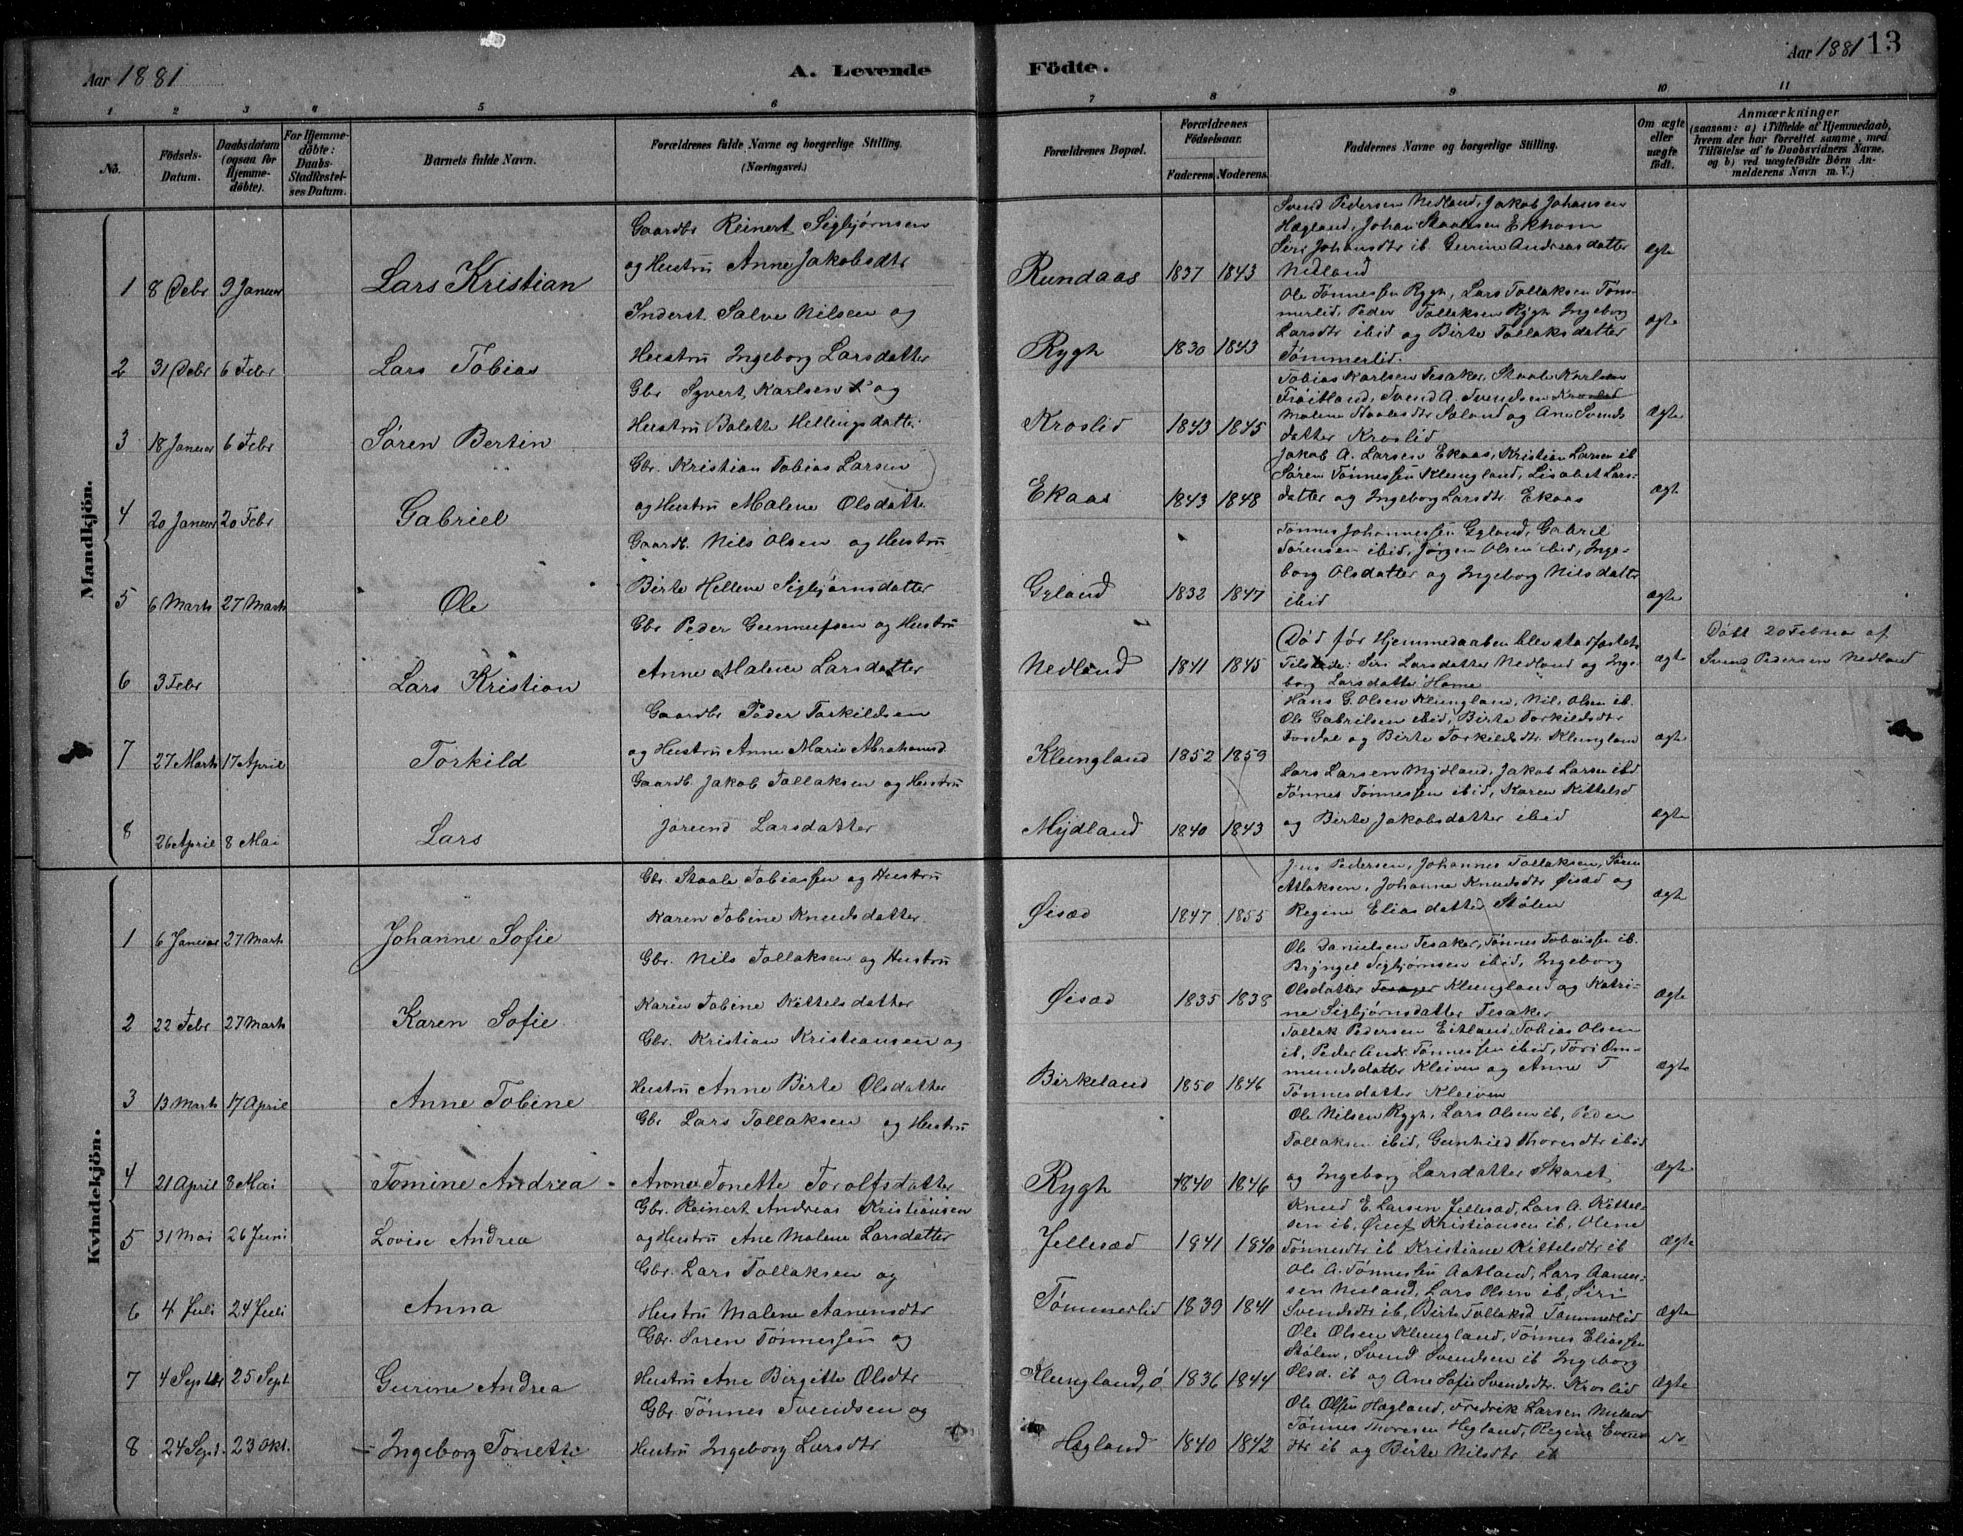 Aar 1881
A. Levende Födte.
Aar 1881 13
1 2 3 4 5 6 7 8 9 10 11
No.
Födsels-Datum.
Daabsdatum (ogsaa for Hjemme-döbte).
For Hjemme-döbte: Daabs-Stadfæstel-ses Datum.
Barnets fulde Navn.
Forældrenes fulde Navne og borgerlige Stilling. (Næringsvei.)
Forældrenes Bopæl.
Forældrenes Födselsaar.
Faderens. Moderens.
Faddernes Navne og borgerlige Stilling.
Om ægte eller uægte födt.
Anmærkninger
(saasom: a) i Tilfælde af Hjemmedaab, hvem der har forrettet samme, med Tilföielse af to Daabsvidners Navne, og b) ved uægtefödte Börn An-melderens Navn m. V.)
Mandkjön.
1 8 Debr 9 Januar Lars Kristian
Gaardbr Reinert Sigbjørnsen
og Hustru Anne Jakobsdtr
Rundaas 1837 1843
Svend Pedersen Nedland, Jakob Johansen
Hægland, Johan Staalesen Ekhom
Seri Johansdtr ib Gurine Andreasdatter
Nedland
ægte
2 31 Debr 6 Febr Lars Tobias
Inderst. Salve Nilsen og
Hustru Ingeborg Larsdatter
Rygh 1830 1843
Ole Tønnessen Rygh, Lars Tollaksen Tøm-
merlid, Peder Tollaksen Rygh Ingeborg
Larsdtr ibid og Birte Tollaksdatter
Tømmerlid.
ægte
3 18 Januar 6 Febr Søren Bertin
Gbr Syvert Karlsen og
Hustru Bolette Hellingsdatter
Kroslid 1843 1845
Tobias Karlsen Tesaker, Staale Karlsen
Frøitland, Svend A. Svendsen Kroslid
Malene Staalesdtr Saland og Ane Svends
datter Kroslid
ægte
4 20 Januar 20 Febr Gabriel
Gbr. Kristian Tobias Larsen
og Hustru Malene Olsdatte
Ekaas 1843 1848
Jakob A. Larsen Ekaas, Kristian Larsen ib
Søren Tønnessen Klungland, Lisabet Lars-
datter og Ingeborg Larsdtr Ekaas
ægt
5 6 Marts 27 Marts Ole
Gaardb. Nils Olsen og Hustru
Birte Hellene Sigbjørnsdatter
Gyland 1832 1847
Tønnes Johannessen Gyland, Gabriel
Sørensen ibid, Jørgen Olsen ibid, Inge-
borg Olsdatter og Ingeborg Nilsdatte
ibid
ægte
6 3 Febr Lars Kristian
Gbr Peder Gunnufsen og Hustru
Anne Malene Larsdatter
Nedland 1841 1845
Død før Hjemmedaaben blev stadfæstet
Tilstede: Seri Larsdatter Nedland og Inge
borg Larsdatte Home
ægte
Døbt 20 Februar af
Svend Pedersen Nedland
7 27 Marts 17 April Torkild
Gaardbr Peder Torkildsen
og Hustru Anne Marie Abrahamsd
Klungland 1852 1859
Hans G. Olsen Klungland, Nils Olsen ib.
Ole Gabrielsen ibid, Birte Torkildsdtr
Tosdal og Birte Torkildsdtr Klungland
ægte
8 26 April 8 Mai Lars
Gaardb. Jakob Tollaksen og Hustru
Jorund Larsdatter
Mydland 1840 1843
Lars Larsen Mydland, Jakob Larsen ibid
Tønnes Tønnessen ibid, Karen Kittelsd
og Birte Jakobsdatter ibid
ægte
Kvindekjön.
1 6 Januar 27 Marts Johanne Sofie
Gbr. Staale Tobiassen og Hustru
Karen Tobine Knudsdatter
Øisæd 1847 1855
Jens Pedersen, Johannes Tollaksen, Søren
Atlaksen, Johanne Knudsdtr Øisæd og
Regine Eliasdatter Stølen
ægte
2 22 Febr 27 Marts Karen Sofie
Gbr. Nils Tollaksen og Hustru
Karen Tobine Kittelsdatter
Øisæd 1835 1838
Ole Danielsen Tesaker, Tønnes Tobiassen ib.
Bryngel Sigbjørnsen ibid, Ingeborg
Olsdatter Klungland og Katri-
ne Sigbjørnsdatter Tesaker
ægte
3 13 Marts 17 April Anne Tobine
Gbr. Kristian Kristiansen og
Hustru Anne Birte Olsdatter
Birkeland 1850 1846
Tollak Pedersen Eitland, Tobias Olsen
ib, Peder Andr. Tønnessen ibid, Tori Om-
mundsdatter Kleiven og Anne T
Tønnesdatter Kleiven
ægte
4 21 April 8 Mai Tomine Andrea
Gbr Lars Tollaksen og Hustru
Anne Tonette Torolfsdatter
Rygh 1840 1846
Ole Nilsen Rygh, Lars Olsen ib, Peder
Tollaksen ibid, Gunhild Thoresdtr ibid
og Ingeborg Larsdatter Skaret
ægte
5 31 Mai 26 Juni Lovise Andrea
Gbr. Reinert Andreas Kristiansen
og Hustru Ane Malene Larsdatter
Jellesæd 1841 1840
Knud E. Larsen Jellesæd, Lars A. Kittel-
sen ib, Kristiansen ib, Olene
Tønnesdtr ib Kristiane Kittelsdtr ib
ægte
6 4 Juli 24 Juli Anna
Gbr. Lars Tollaksen og
Hustru Malene Aanensdtr
Tømmerlid 1839 1841
Ole A. Tønnessen Aatland, Lars Aanen-
sen Nuland, Lars Olsen ib, Siri
Svendsdtr ib, Birte Tollaksd Tømmerlid
ægte
7 4 Septbr 25 Sept Gurine Andrea
Gbr. Søren Tønnessen og
Hustru Ane Birgitte Olsdtr
Klungland, ø 1836 1844
Ole Olsen Klungland, Tønnes Eliassen
Stølen, Svend Svendsen ib Ingeborg
Olsd. ib og Ane Sofie Svendsdtr Kroslid
ægte
8 24 Sept. 23 Okt. Ingeborg Tonette
Gbr Tønnes Svendsen og
Hustru Ingeborg Larsdtr
Hægland 1840 1842
Ole Olsen Hægland, Fredrik Larsen Nuland
Tønnes Thoresen Hægland, Regine Evens
dtr ib og Birte Nilsdtr ib
do